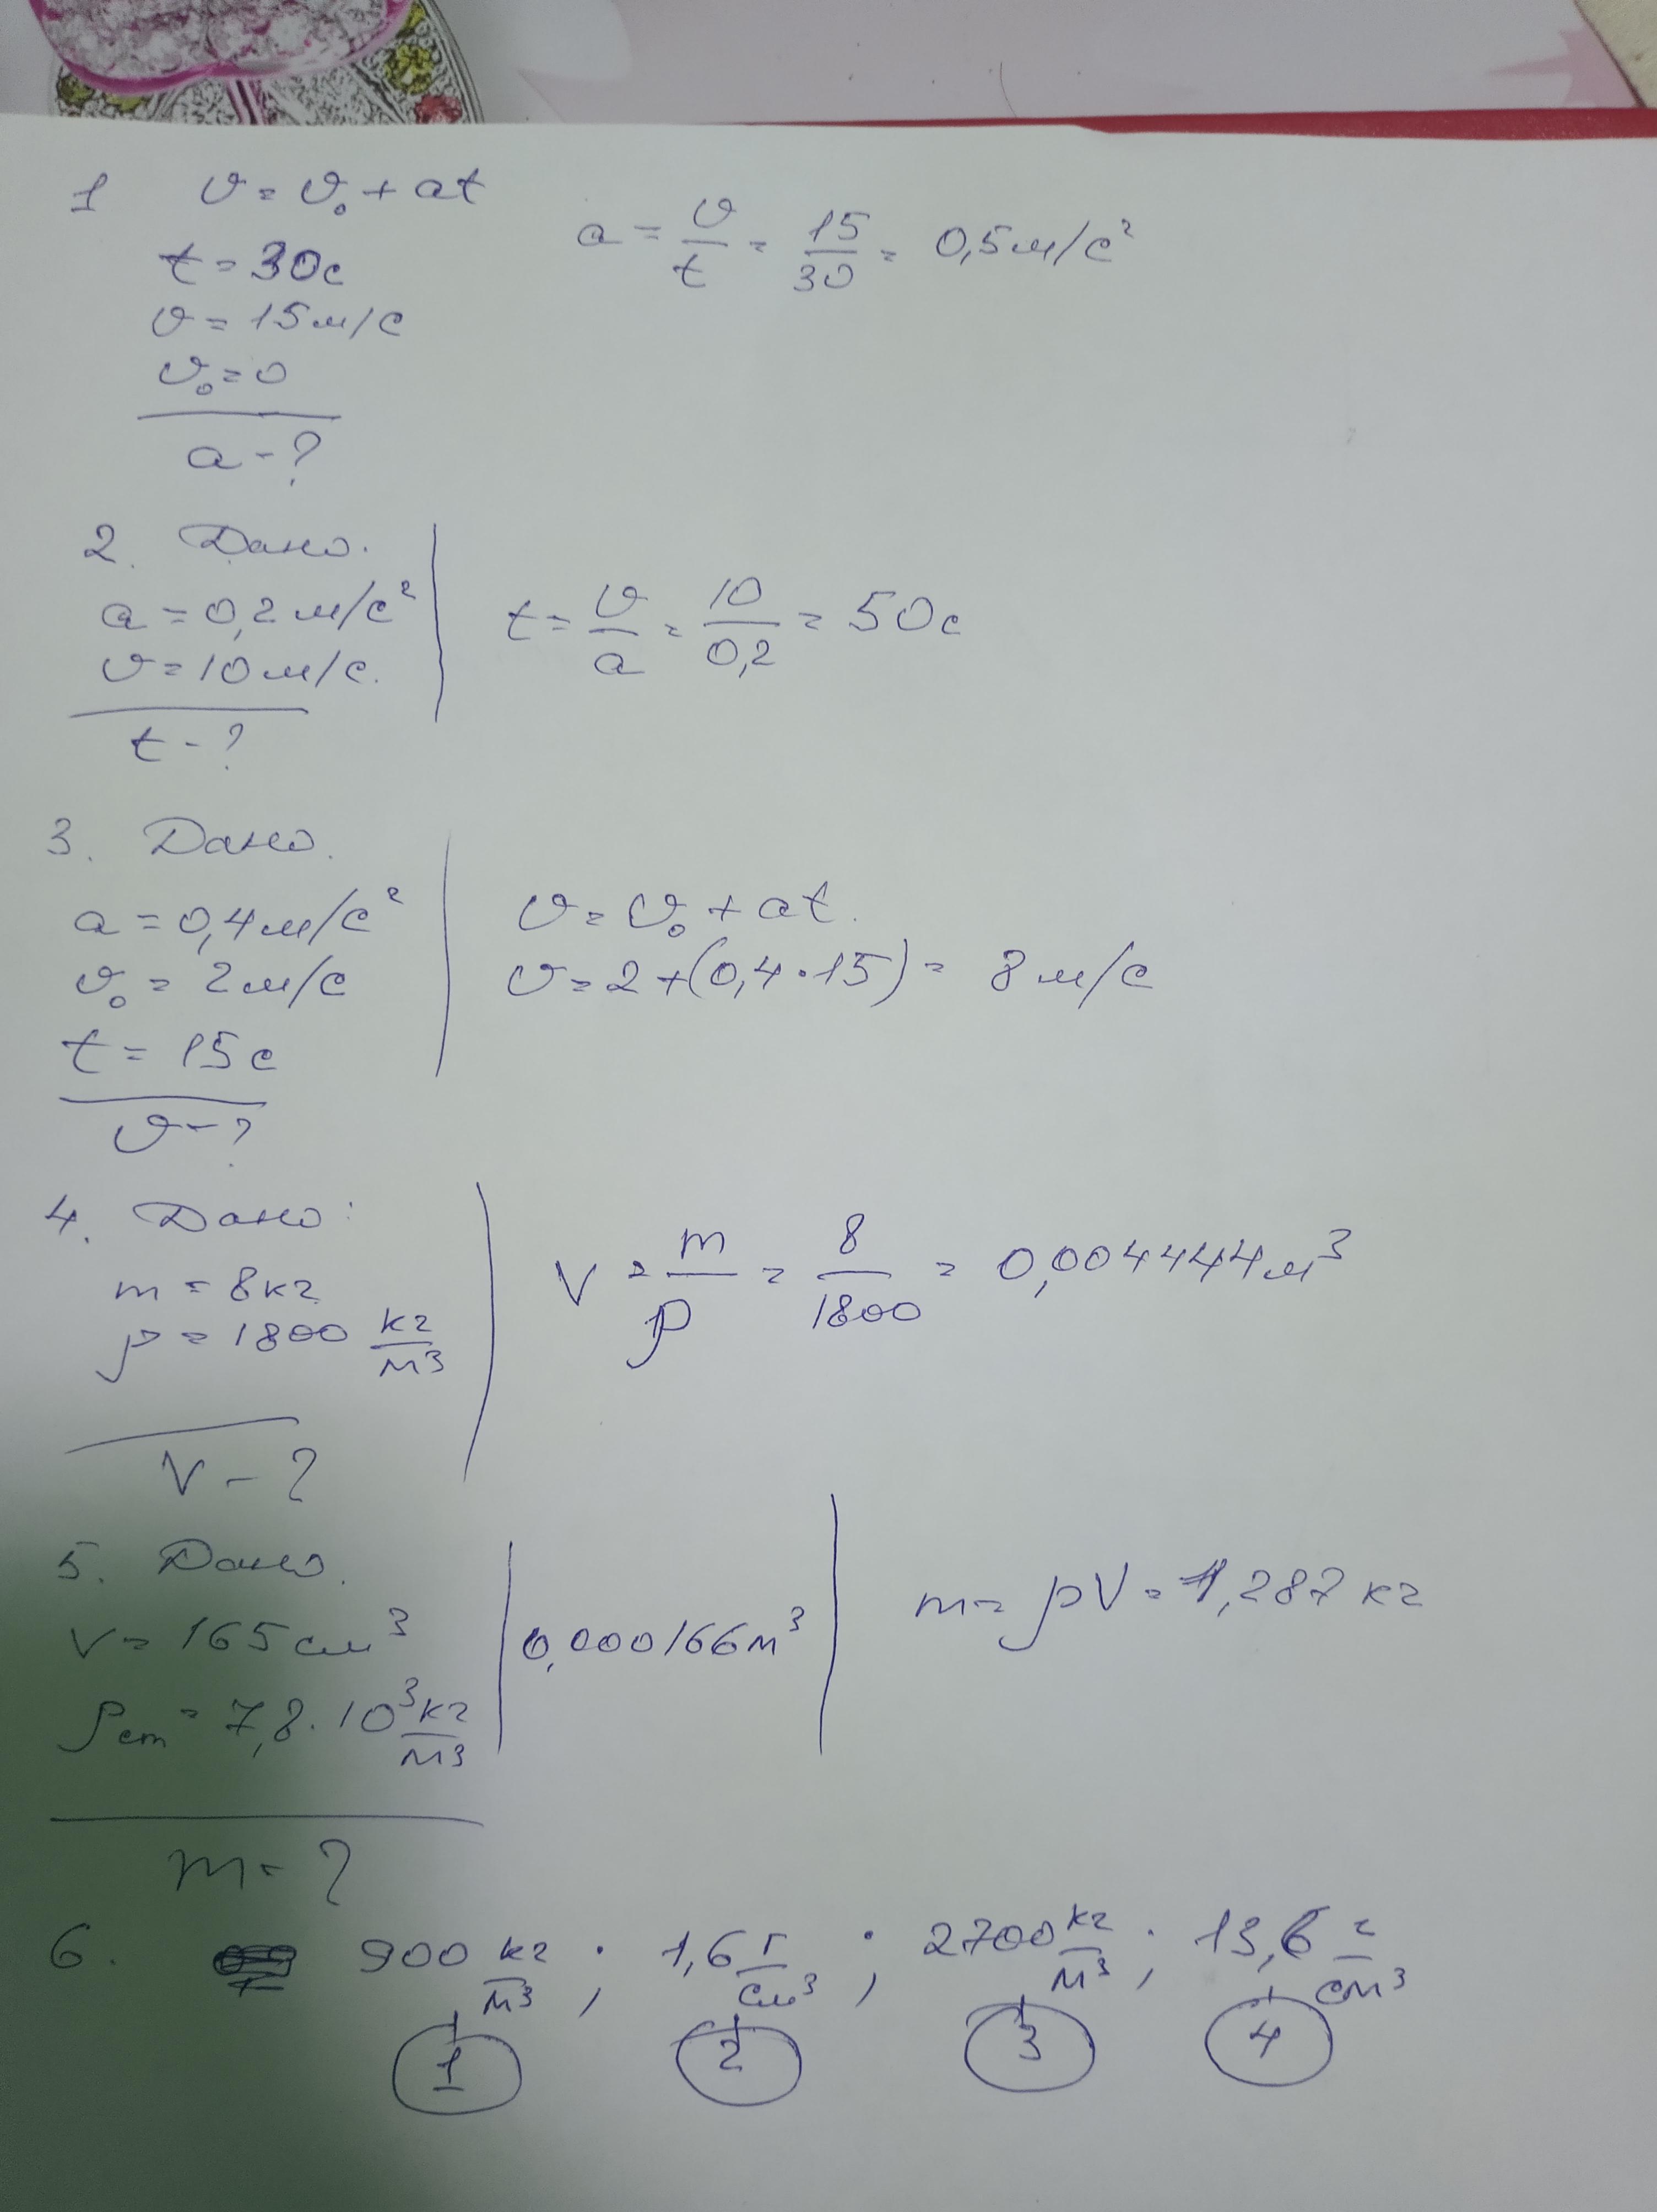 1 υ = υ₀ + at
t = 30с
υ = 15 м/с
υ₀ = 0
a - ?
a = υ/t = 15/30 = 0,5 м/с²
2. Дано.
a = 0,2 м/с²
υ = 10 м/с.
t - ?
t = υ/a = 10/0,2 = 50с
3. Дано.
a = 0,4 м/с²
υ₀ = 2 м/с
t = 15 с
υ - ?
υ = υ₀ + at.
υ = 2 + (0,4 · 15) = 8 м/с
4. Дано:
m = 8 кг
ρ = 1800 кг/м³
V - ?
V = m/ρ = 8/1800 = 0,004444 м³
5. Дано.
V = 165 см³
ρст = 7,8 · 10³ кг/м³
m - ?
0,000166 м³
m = ρV = 1,287 кг
6. 900 кг/м³ ; 1,6 г/см³ ; 2700 кг/м³ ; 13,6 г/см³
1 2 3 4